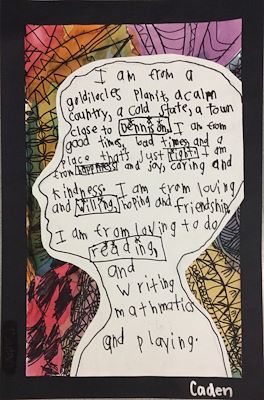 I am from a
goldilocks planit, a calm
country, a cold state, a town
close to Dennison. I am from
good times, bad times and a
place that's just right! I am
from happiness and joy, caring and
kindness. I am from loving
and willing, hoping and friendship.
I am from loving to do
reading,
and
writing
mathmatics
and playing.
Caden